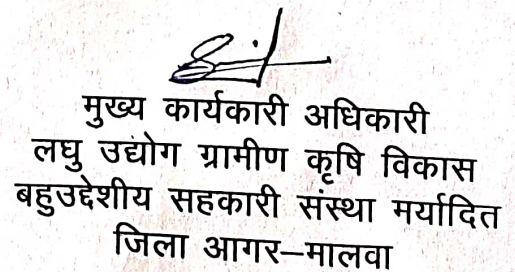 मुख्य कार्यकारी अधिकारी
लघु उद्योग ग्रामीण कृषि विकास
बहुउद्देशीय सहकारी संस्था मर्यादित
जिला आगर–मालवा